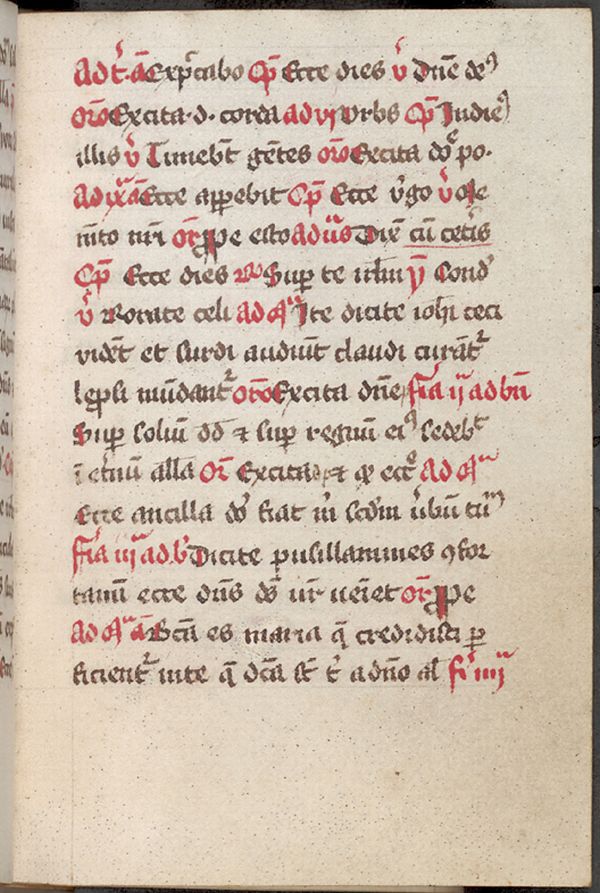 Ad t̄ · añ Exp̄ctabo Cp̄ Ecce dies v̄ Dn̄e deꝰ
Or̄o Excita · d · corda ad vj Vrbs Cp̄ In dieꝰ
illis v̄ Timebt̄ gētes or̄o Excita dn̄e po ·
Ad ix añ Ecce apparebit Cp̄ Ecce v̄go v̄
or̄ Ꝓpe esto ad uꝰs Dix̄ cū cet̄is
Cp̄ Ecce dies Sup te irl̄m v̄ Cond̄
v̄ Rorate celi ad mᵃ Ite dicite ioh̄i ceci
vidēt et surdi audiūt claudi curāt᷑
lep̄si mūdant᷑ or̄o Excita dn̄e fīa ij ad bn̄
Sup soliū dd̄ ⁊ sup regnum eiꝰ sedebᵗ
ī et̄nū alla Or̄ Excita ⁊ Ad mᵃ
Ecce ancilla dn̄i fiat m̄ scdm̄ v̄bū tuū
fīa iij ad b̄ Dicite pusillanimes ꝯfor
tamī ecce dn̄s ds̄ nr̄ veīet or̄ Ꝓpe
Ad mᵃ añ Bt̄a es maria q̄ credidisti p
ficient᷑ in te q̄ dc̄a st̄ t̄ a dn̄o al̄ fī iiij